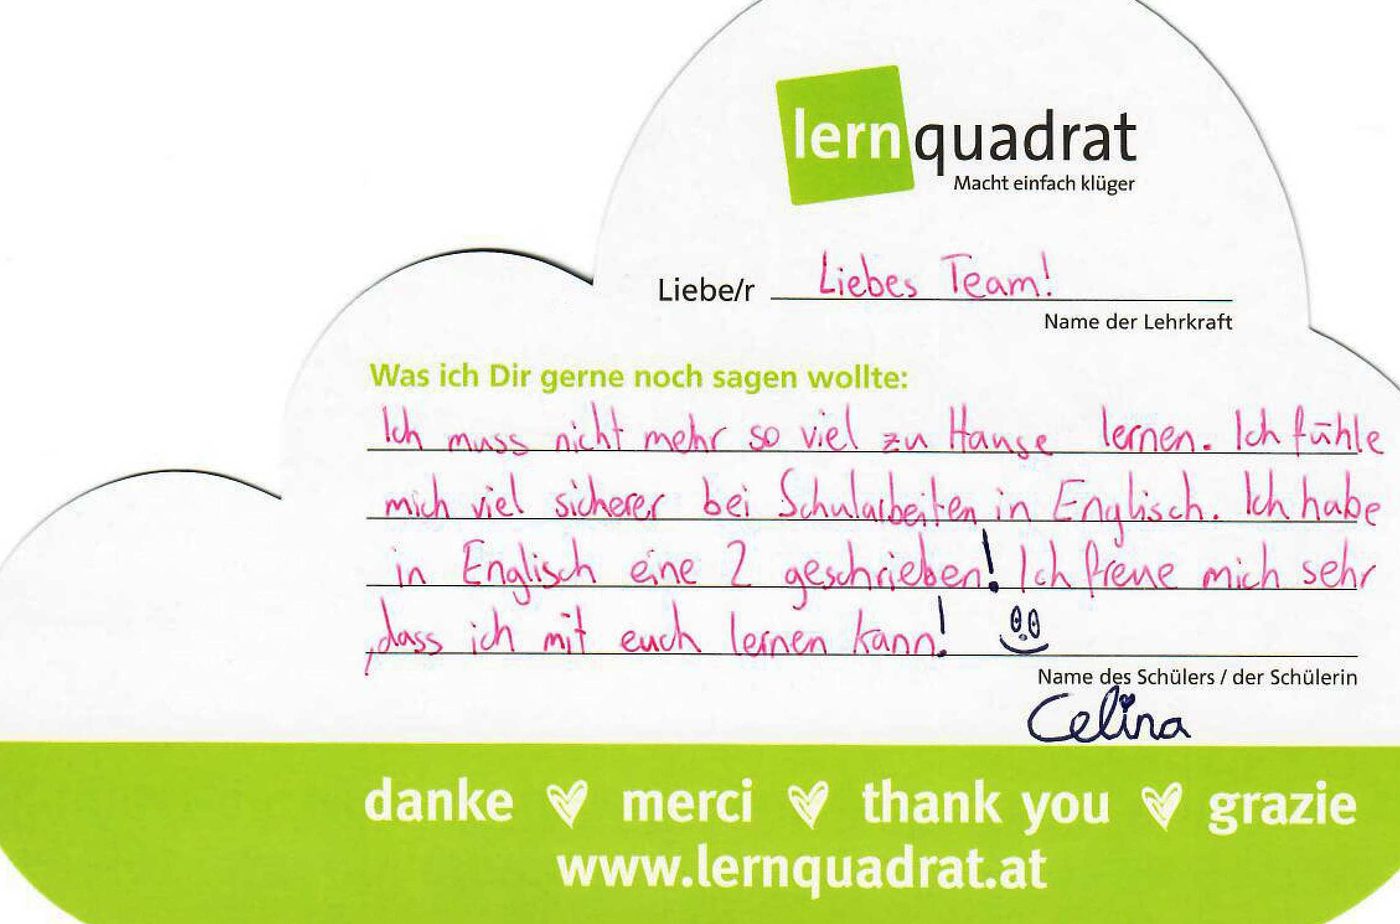 lernquadrat
Macht einfach klüger
Liebe/r Liebes Team!
Name der Lehrkraft
Was ich Dir gerne noch sagen wollte:
Ich muss nicht mehr so viel zu Hause lernen. Ich fühle
mich viel sicherer bei Schularbeiten in Englisch. Ich habe
in Englisch eine 2 geschrieben! Ich freue mich sehr
,dass ich mit euch lernen kann!
Name des Schülers / der Schülerin
Celina
danke merci thank you grazie
www.lernquadrat.at